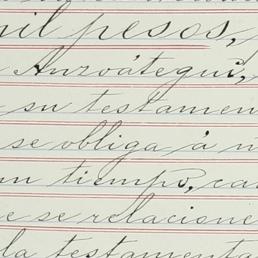 mil pesos,
Anzoátegui,
su testamen
se obliga á
tiempo, ca
e se relacione
la testamenta